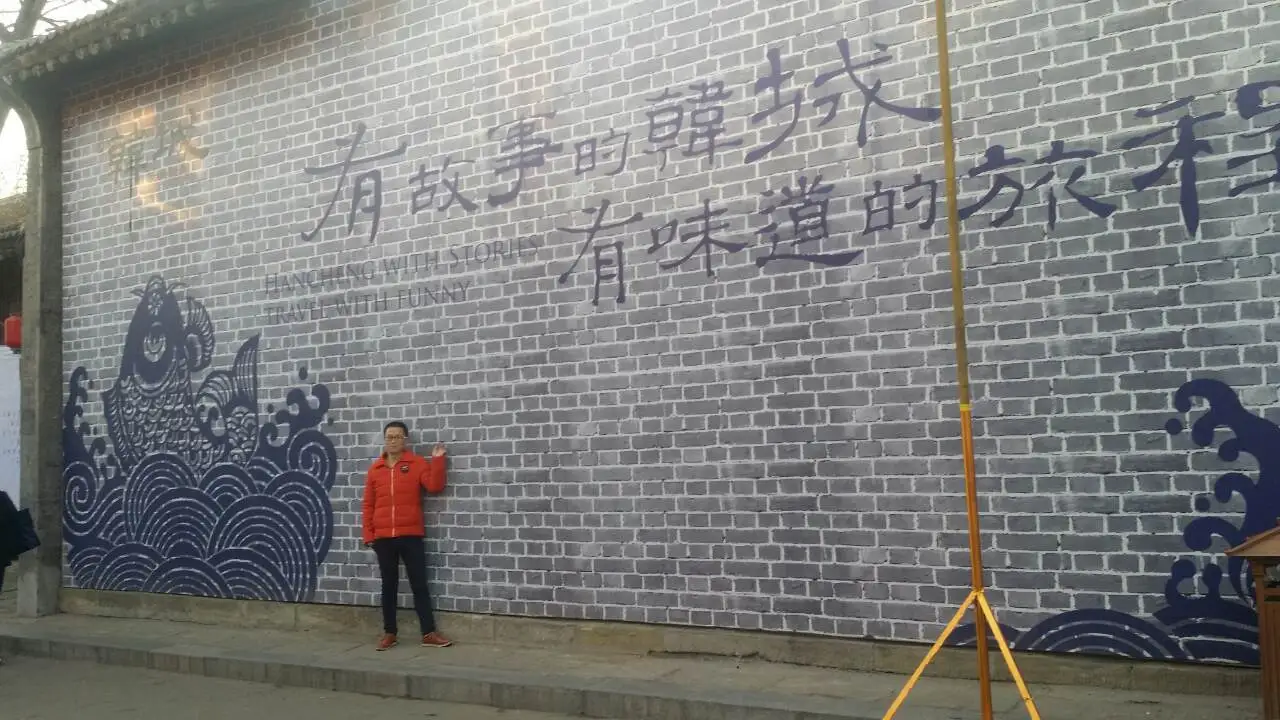 韓城
有故事的韓城
有味道的旅程
HANCHENG WITH STORIES
TRAVEL WITH FUNNY